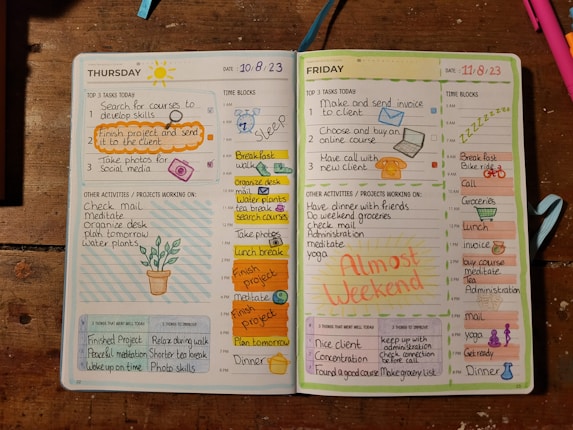 THURSDAY
DATE : 10/8/23
TOP 3 TASKS TODAY
1 Search for courses to
develop skills
2 Finish project and send
it to the client
3 Take photos for
social media
OTHER ACTIVITIES / PROJECTS WORKING ON:
Check mail
Meditate
Organize desk
plan tomorrow
water plants
3 THINGS THAT WENT WELL TODAY
Finished Project
Peaceful meditation
Woke up on time
3 THINGS TO IMPROVE
Relax during walk
Shorter tea break
Photo skills
TIME BLOCKS
SLEEP
Breakfast
walk
Organize desk
mail
Water plants
tea break
Search courses
Take photos
Lunch break
Finish
project
Meditate
Finish
project
Plan tomorrow
Dinner
FRIDAY
DATE : 11/8/23
TOP 3 TASKS TODAY
1 Make and send invoice
to client
2 Choose and buy an
online course
3 Have call with
new client
OTHER ACTIVITIES / PROJECTS WORKING ON:
Have dinner with friends
Do weekend groceries
check mail
Administration
meditate
yoga
Almost
Weekend
3 THINGS THAT WENT WELL TODAY
Nice client
Concentration
Found a good course
3 THINGS TO IMPROVE
keep up with
administration
Check connection
before call
Make grocery list
TIME BLOCKS
ZZZZZZZ
Breakfast
Bike ride
Call
Groceries
Lunch
invoice
buy course
meditate
Tea
Administration
mail
yoga
Get ready
Dinner